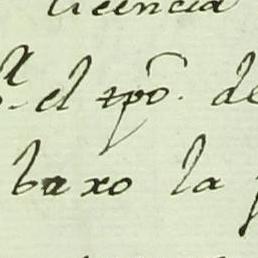 licencia
el tpõ. de
baxo la